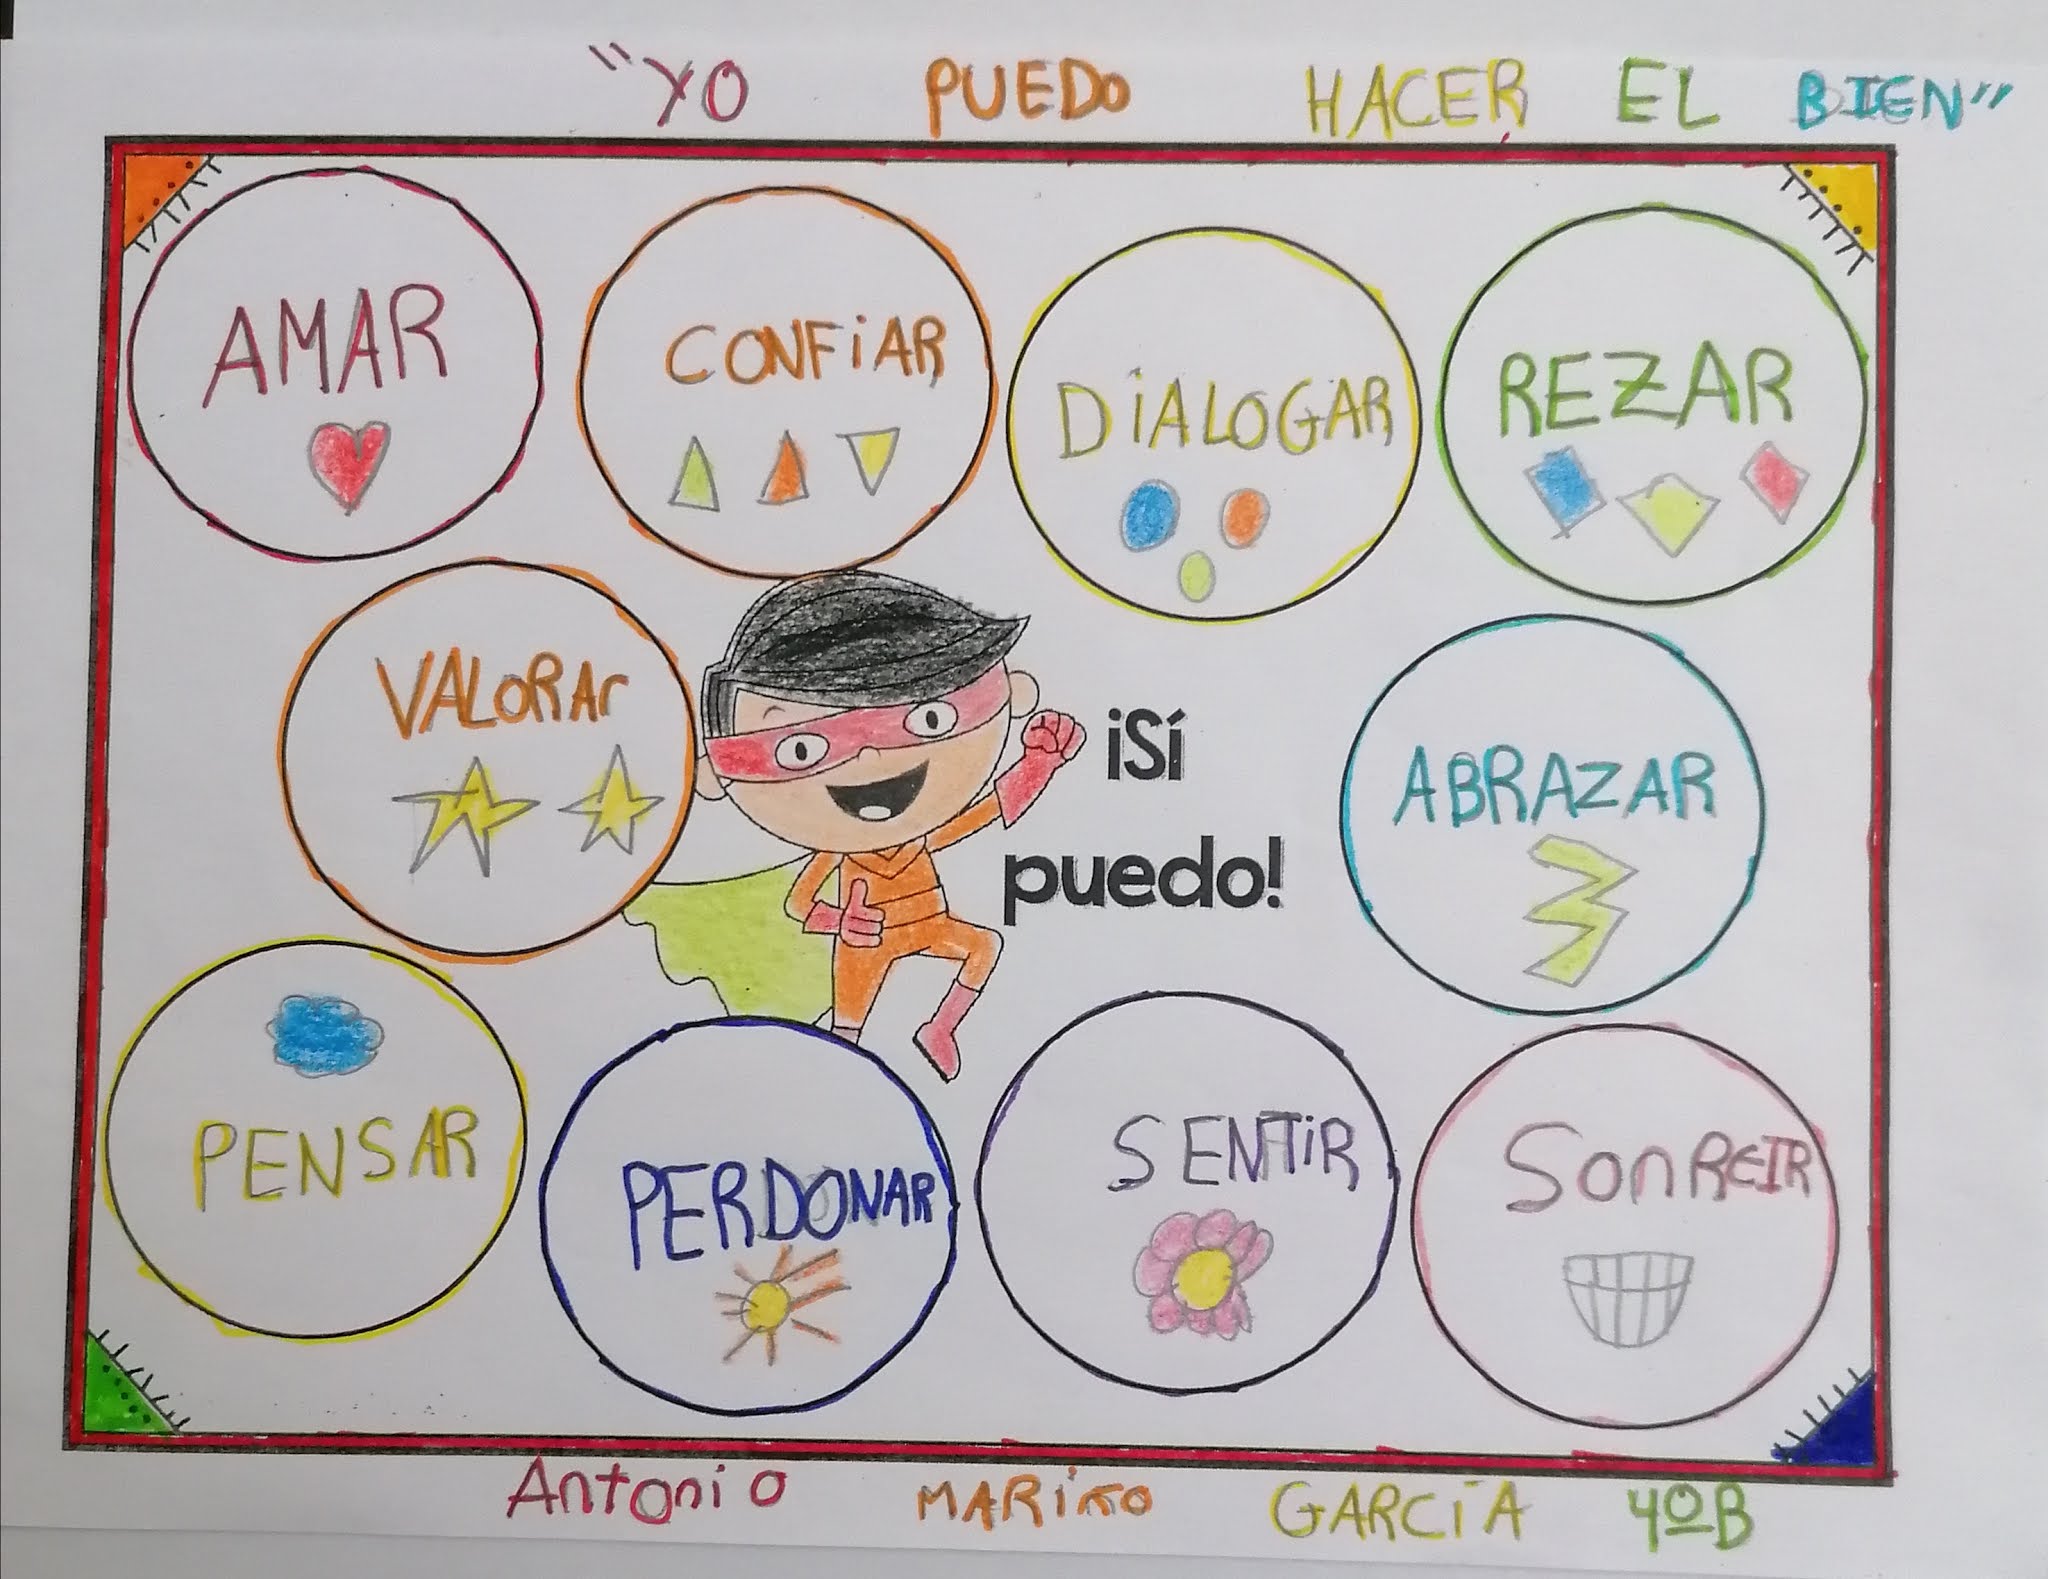 "YO PUEDO HACER EL BIEN"
AMAR
CONFiAR
DiALOGAR
REZAR
VALORAr
¡Sí
puedo!
ABRAZAR
PENSAR
PERDONAR
SENTiR
SonREIR
Antonio GARCÍA 4ºB